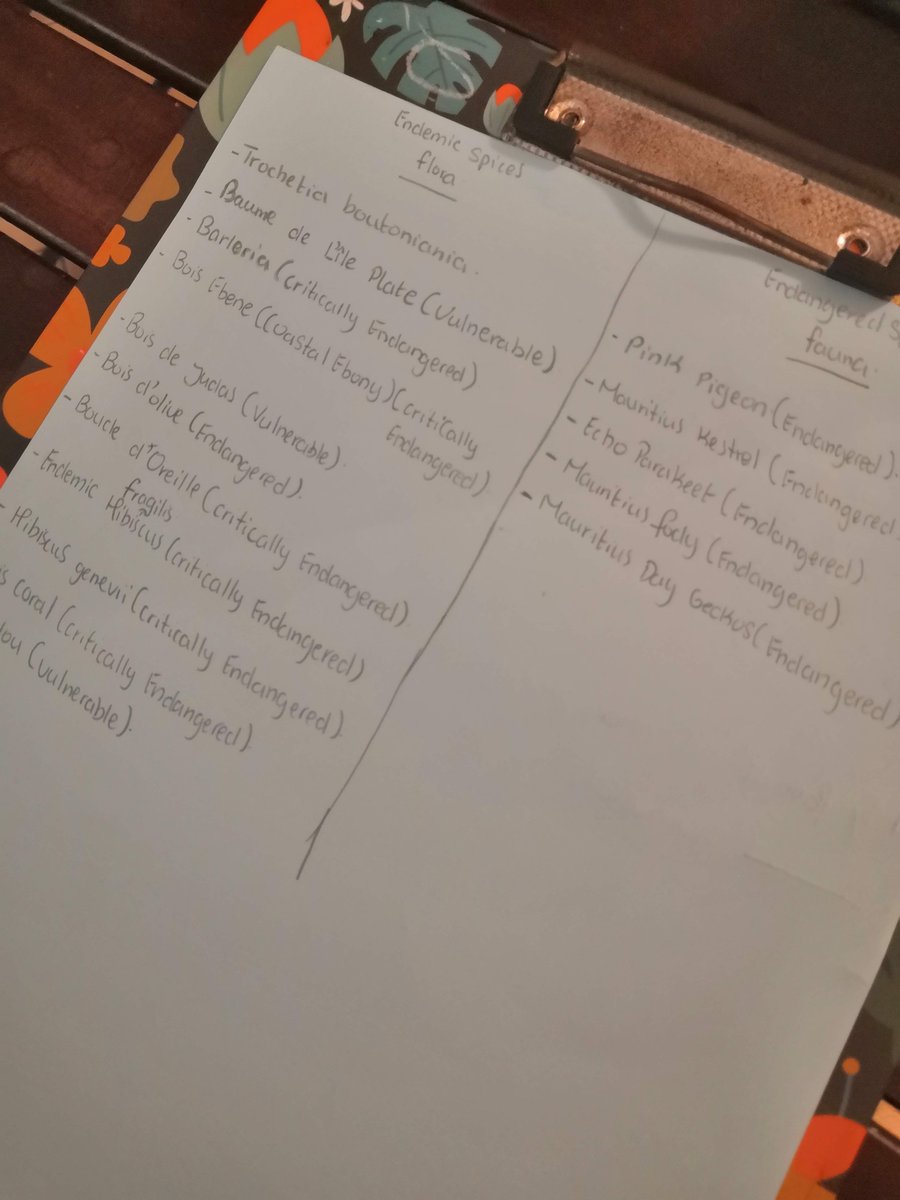 Endemic Spices
flora
- Trochetia boutoniania.
- Baume de L'île Plate (Vulnerable)
- Barleria (Critically Endangered)
- Bois Ebene (Coastal Ebony) (Critically
Endangered).
- Bois de Judas (Vulnerable).
- Bois d'olive (Endangered).
- Boucle d'Oreille (Critically Endangered)
- Endemic Hibiscus fragilis (Critically Endangered)
- Hibiscus genevii (Critically Endangered)
Coral (Critically Endangered)
(Vulnerable).
Endangered
fauna
- Pink Pigeon (Endangered).
- Mauritius Kestrel (Endangered
- Echo Parakeet (Endangered)
- Mauritius fody (Endangered)
- Mauritius Day Geckos (Endangered)